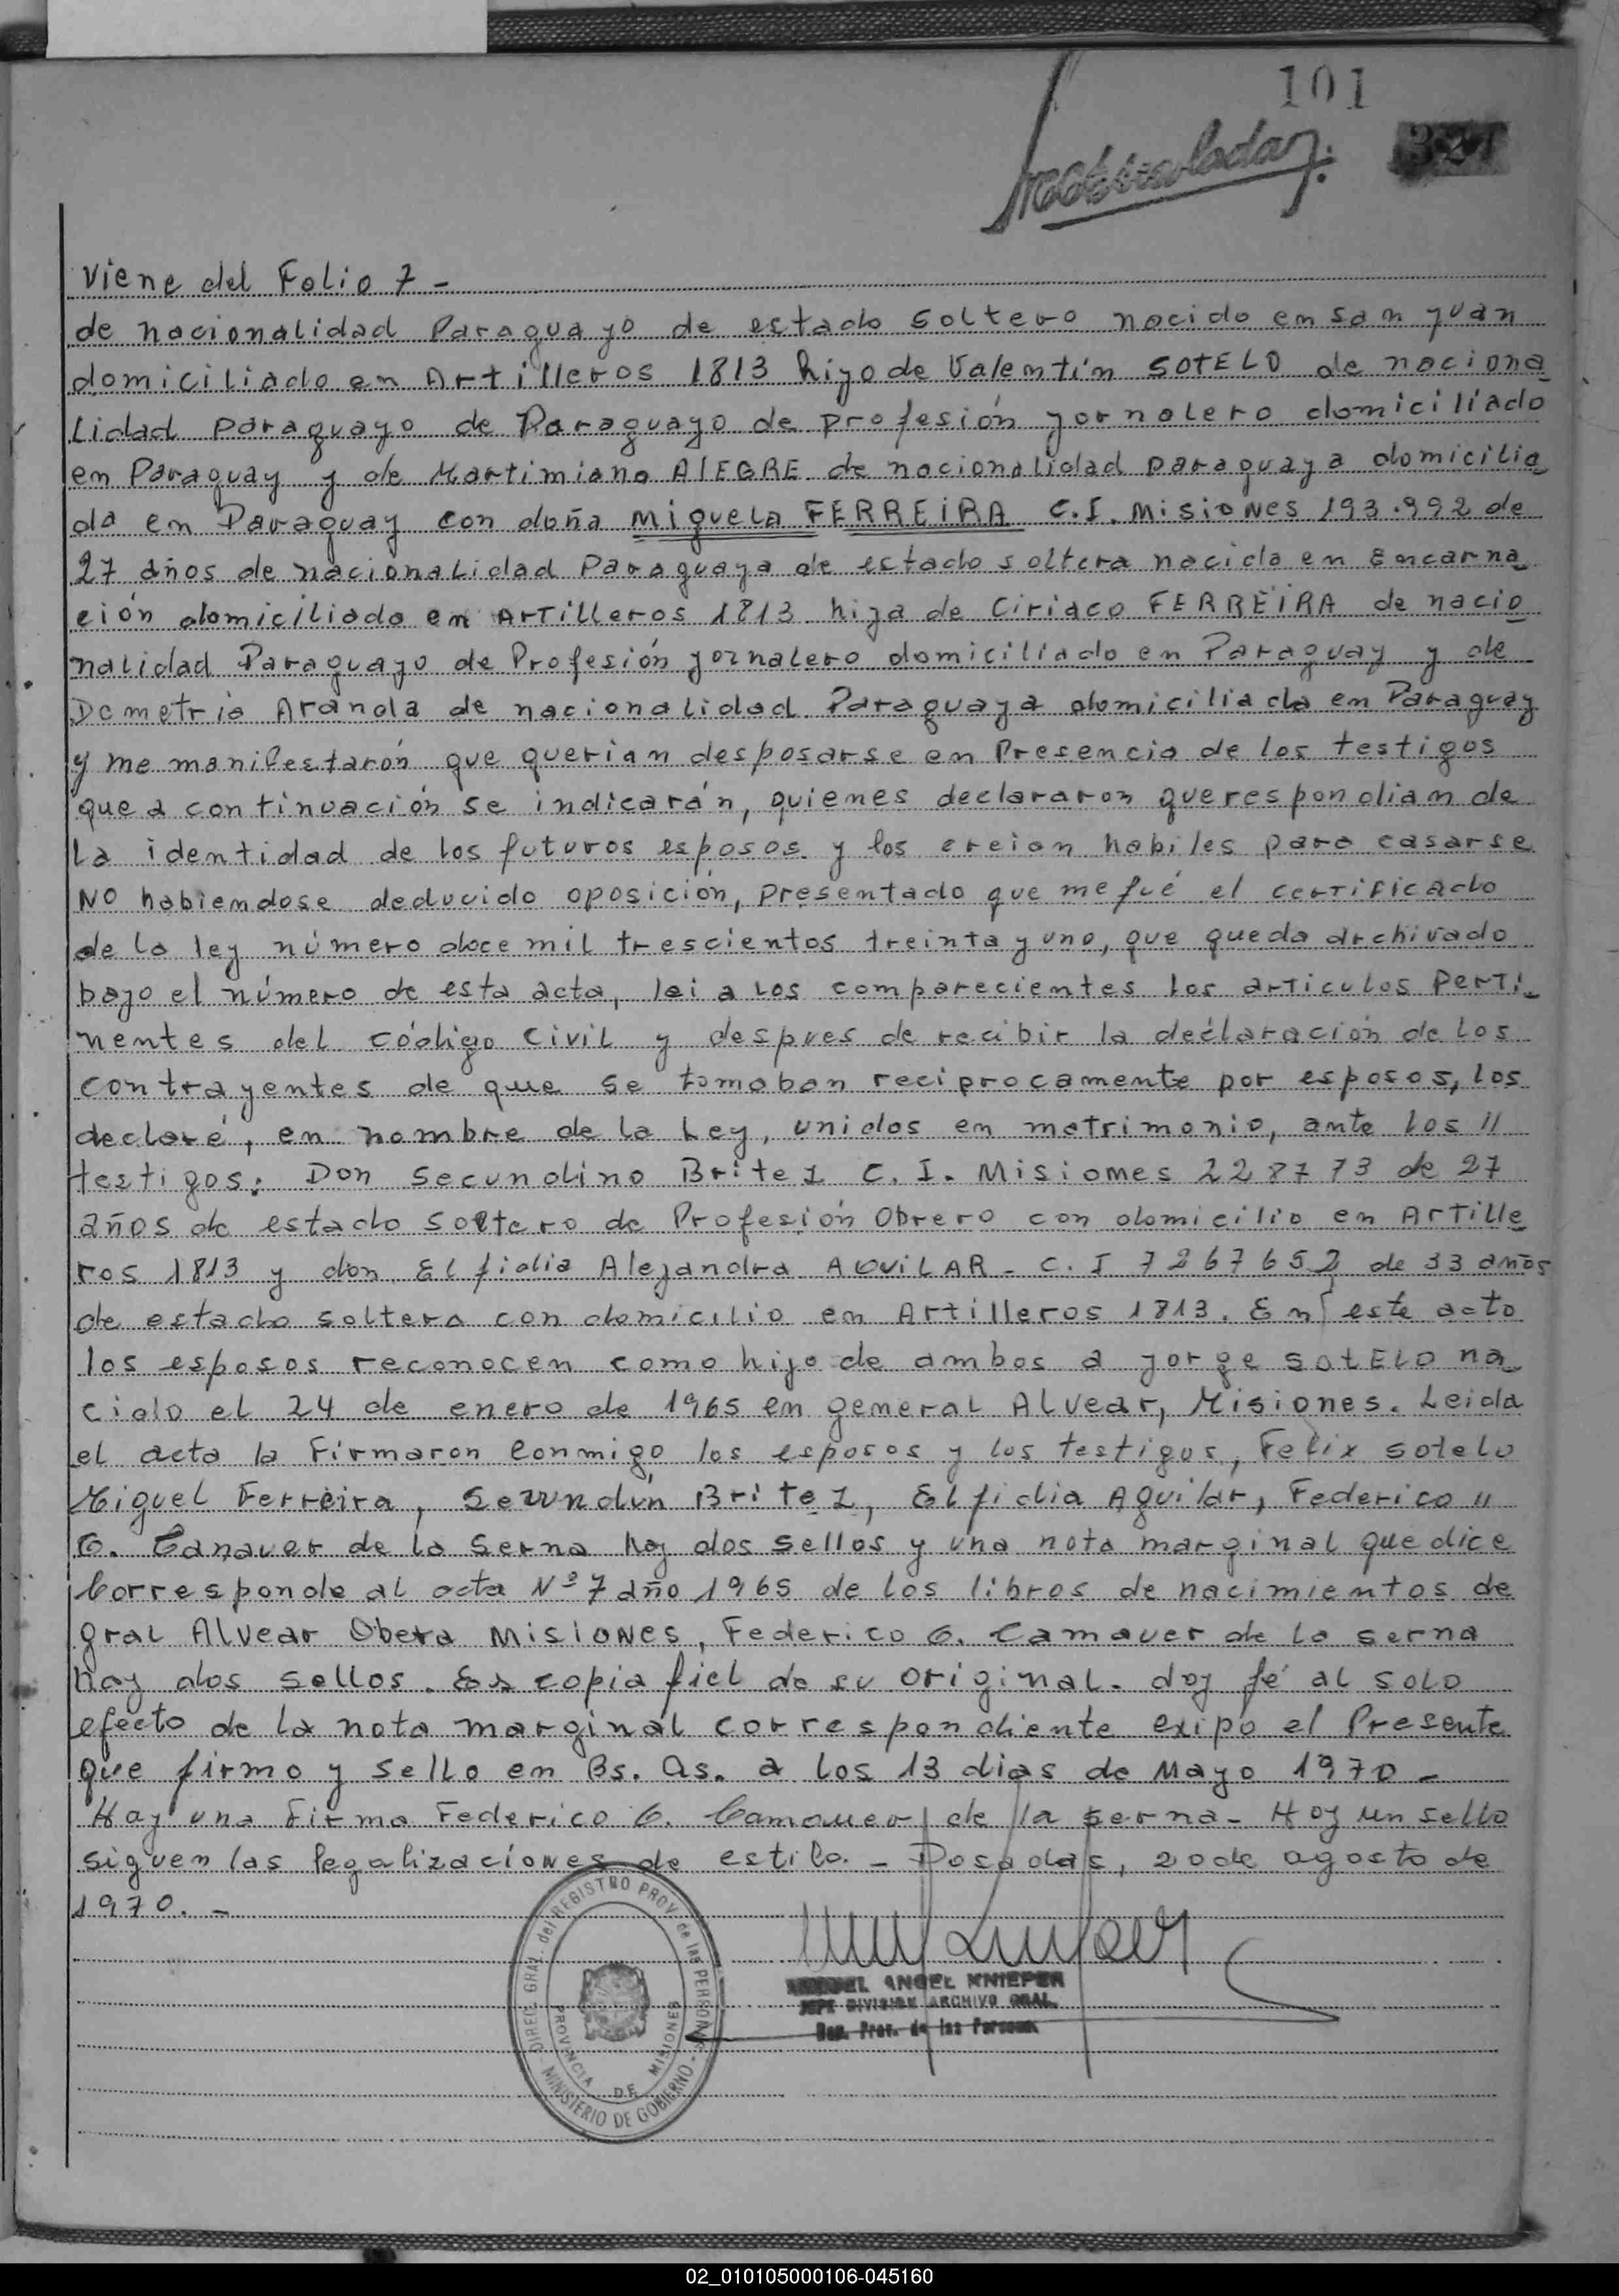 101
327
Viene del Folio 7 -
de nacionalidad Paraguayo de estado soltero nacido en san Juan
domiciliado en Artilleros 1813 hijo de Valentín SOTELO de naciona
lidad paraguayo de Paraguayo de profesión jornalero domiciliado
en Paraguay y de Martimiana AlEGRE de nacionalidad paraguaya domicilia
da en Paraguay con doña Miguela FERREiRA C.I. Misiones 193.992 de
27 años de nacionalidad Paraguaya de estado soltera nacida en Encarna
ción domiciliada en Artilleros 1813 hija de Ciriaco FERREiRA de nacio
nalidad Paraguayo de Profesión jornalero domiciliado en Paraguay y de
Demetria Aranda de nacionalidad Paraguaya domiciliada en Paraguay
y me manifestarón que querian desposarse en Presencia de los testigos
que a continuación se indicarán, quienes declararon que respondian de
la identidad de los futuros esposos y los creian habiles para casarse
No habiendose deducido oposición, presentado que me fué el certificado
de la ley número doce mil trescientos treinta y uno, que queda archivado
bajo el número de esta acta, lei a los comparecientes los articulos Perti-
nentes del código Civil y despues de recibir la declaración de los
contrayentes de que se tomaban reciprocamente por esposos, los
declaré, en nombre de la Ley, unidos en matrimonio, ante los "
testigos: Don Secundino Britez C. I. Misiones 228773 de 27
años de estado soltero de Profesión Obrero con domicilio en Artille
ros 1813 y don Elfidia Alejandra AGUiLAR - C. I 7267652 de 33 años
de estado soltera con domicilio en Artilleros 1813. En este acto
los esposos reconocen como hijo de ambos a Jorge SOTELO na
cido el 24 de enero de 1965 en general Alvear, Misiones. Leida
el acta la Firmaron conmigo los esposos y los testigos, Felix sotelo
Miguel Ferreira, Secundin Britez, Elfidia Aguilar, Federico "
G. Canaver de la Serna hay dos sellos y una nota marginal que dice
Corresponde al acta Nº 7 año 1965 de los libros de nacimientos de
gral Alvear Obera Misiones, Federico G. Camauer de la serna
hay dos sellos. Es copia fiel de su original. doy fé al solo
efecto de la nota marginal correspondiente exipo el Presente
que firmo y sello en Bs. As. a los 13 dias de Mayo 1970 -
Hay una Firma Federico G. Camauer de la serna - Hay un sello
siguen las legalizaciónes de estilo. - Posadas, 20 de agosto de
1970. -
DIREC. GRAL. del REGISTRO PROV. de las PERSONAS
MINISTERIO DE GOBIERNO
PROVINCIA DE MISIONES
ANGEL KNIEPER
JEFE DIVISION ARCHIVO GRAL.
Reg. Prov. de las Personas
02_010105000106-045160